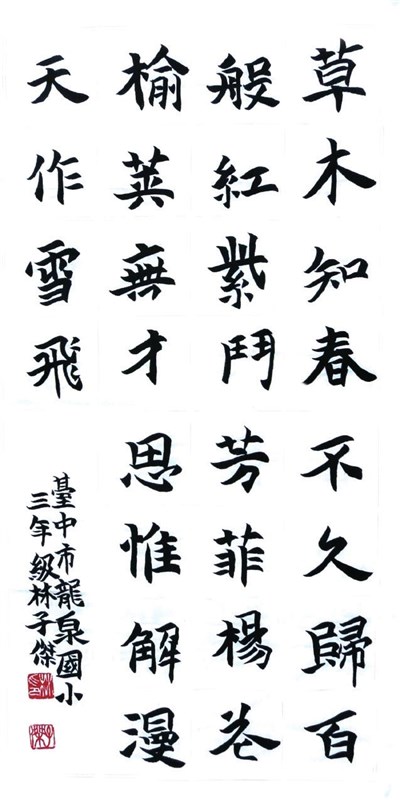 草木知春不久歸百
般紅紫鬥芳菲楊花
榆莢無才思惟解漫
天作雪飛
臺中市龍泉國小
三年級林子傑